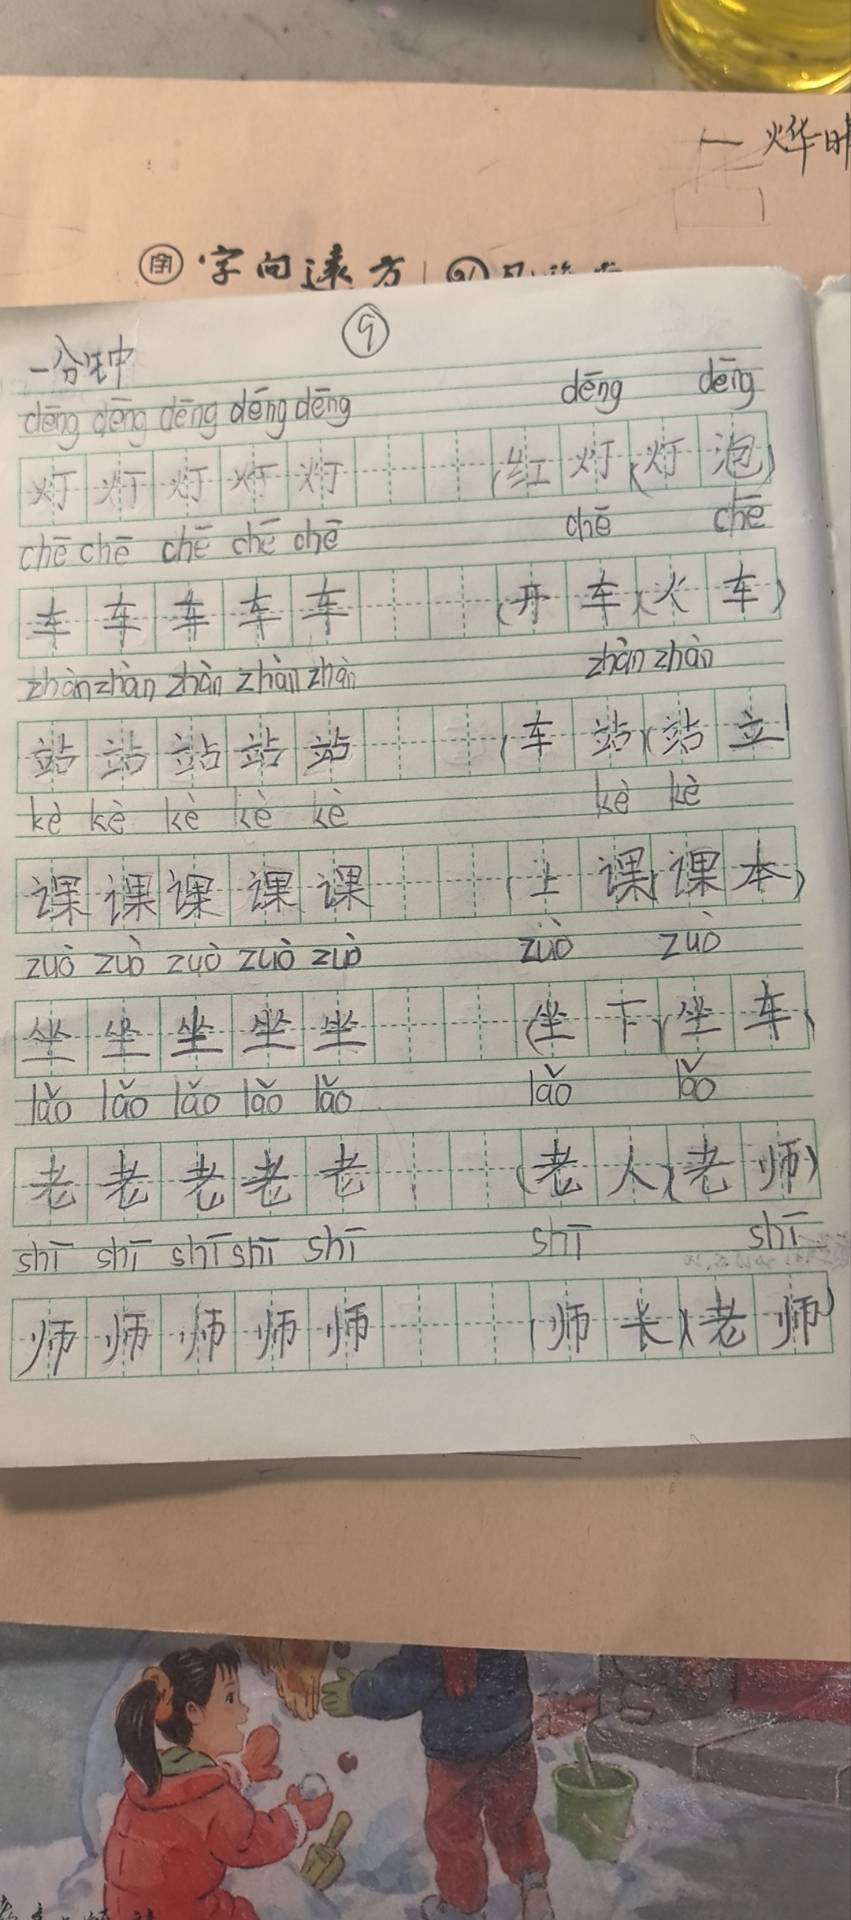 一烨
字向远方
9
一分钟
dēng dēng dēng dēng dēng dēng dēng
灯 灯 灯 灯 灯 (红灯)(灯泡)
chē chē chē chē chē chē chē
车 车 车 车 车 (开车)(火车)
zhàn zhàn zhàn zhàn zhàn zhàn zhàn
站 站 站 站 站 (车站)(站立)
kè kè kè kè kè kè kè
课 课 课 课 课 (上课)(课本)
zuò zuò zuò zuò zuò zuò zuò
坐 坐 坐 坐 坐 (坐下)(坐车)
lǎo lǎo lǎo lǎo lǎo lǎo lǎo
老 老 老 老 老 (老人)(老师)
shī shī shī shī shī shī shī
师 师 师 师 师 (师长)(老师)